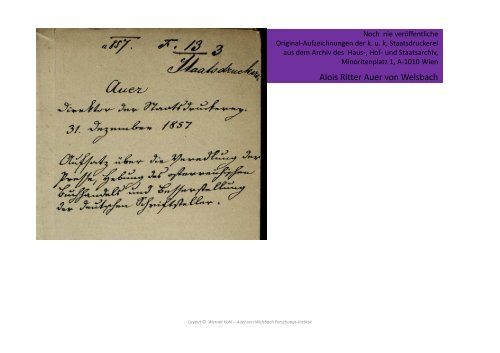 a 1857. N. 13 3
Staatsdruckerei
Auer
Direktor der Staatsdruckerey.
31. Dezember 1857
Aufsatz über die Veredlung der
Presse, Hebung des österreichischen
Buchhandels und Besserstellung
der deutschen Schriftsteller.
Noch nie veröffentliche
Original-Aufzeichnungen der k. u. k. Staatsdruckerei
aus dem Archiv des Haus-, Hof- und Staatsarchiv,
Minoritenplatz 1, A-1010 Wien
Alois Ritter Auer von Welsbach
Layout © Werner Kohl – Auer von Welsbach Forschungs-Institut